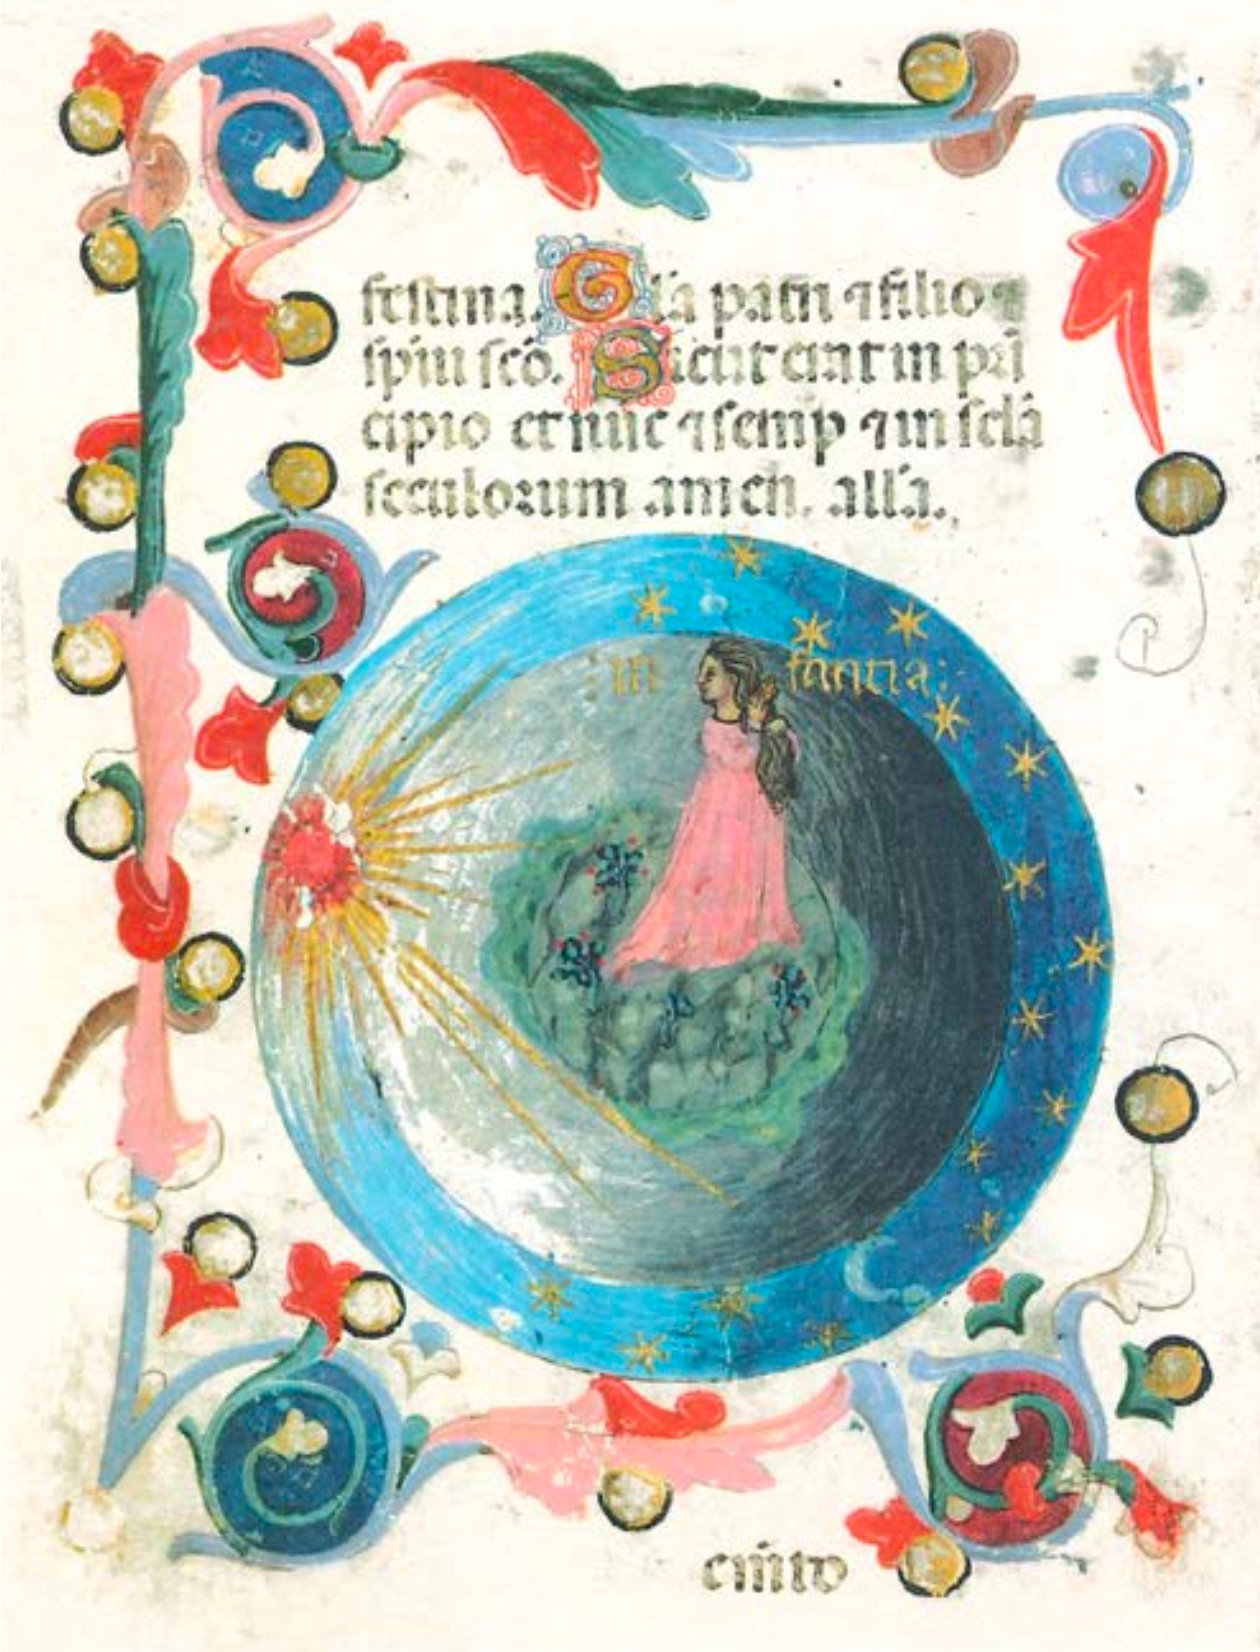 festina. Gl'a patri ⁊ filio ⁊
sp̄iui sc̄o. Sicut erat in prī
cipio et nūc ⁊ semp ⁊ in sclā
seculorum amen. all'a.
: in fantia: